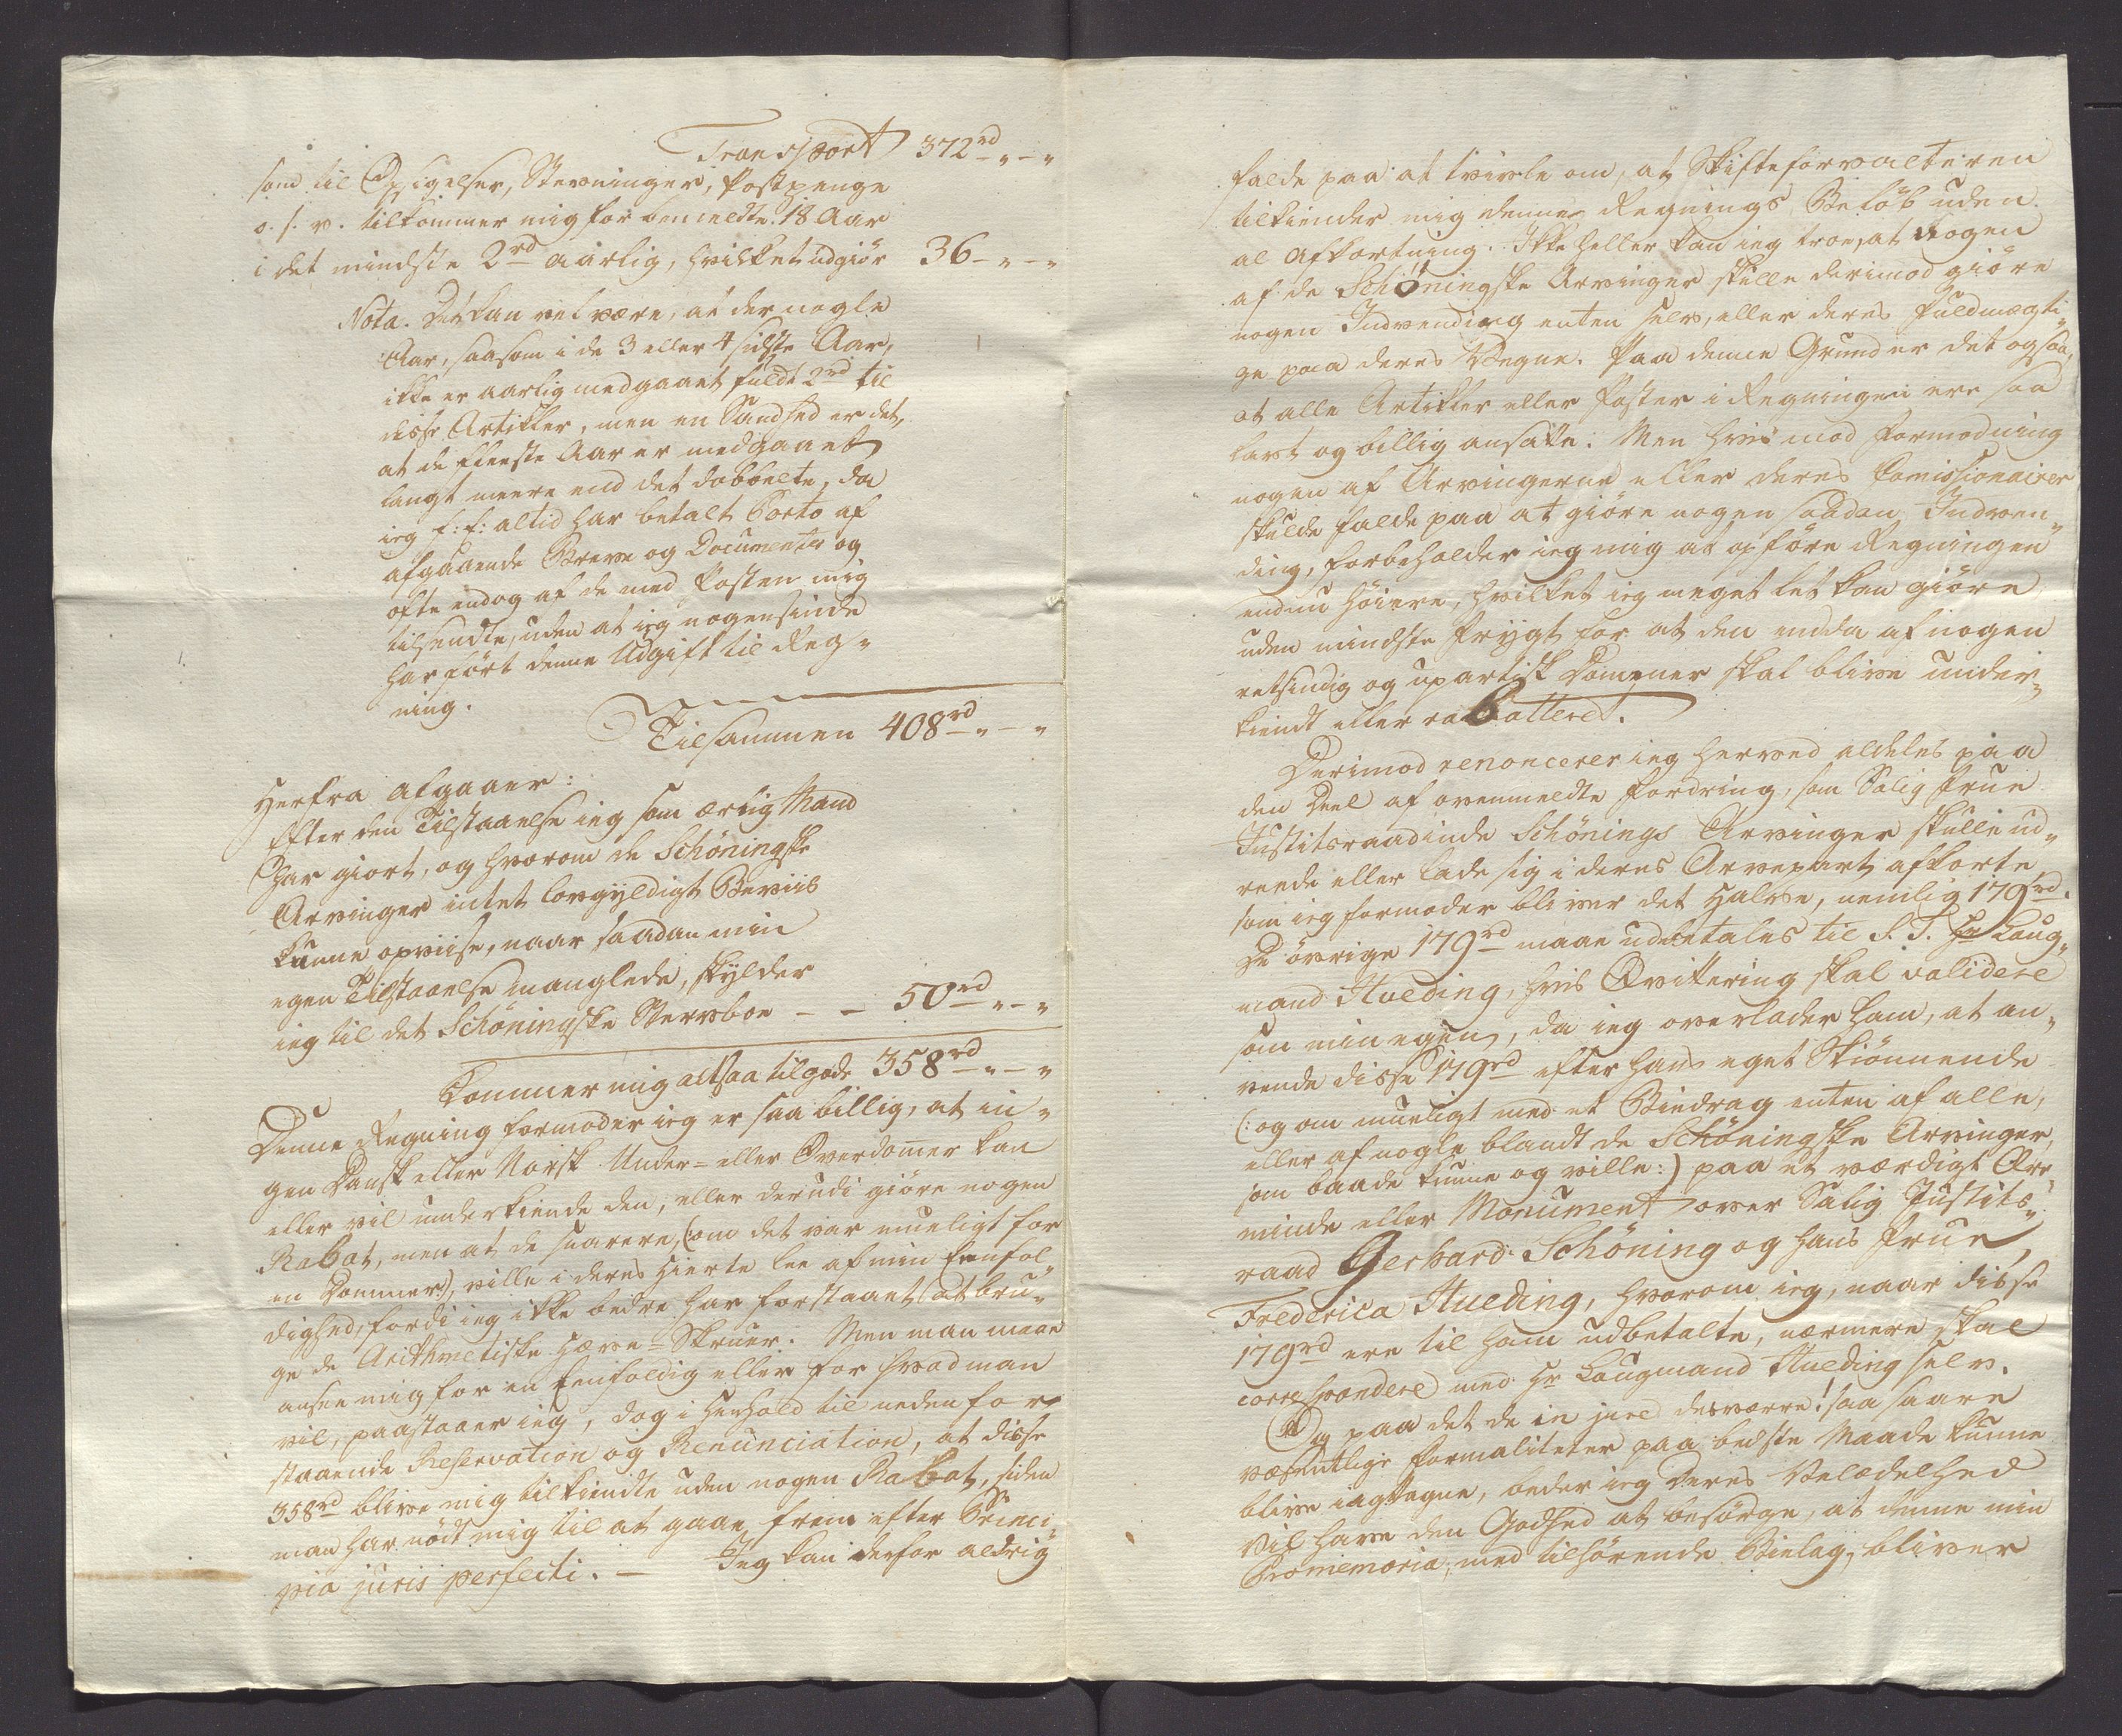 Transport 372rd " - "
som til Opsigelser, Stevninger, Postpenge
o. s. v. tilkommer mig for bemeldte 18 Aar
i det mindste 2rd aarlig, hvilket udgiör 36 - " - "
Nota. Det kan vel være, at der nogle
Aar, saasom i de 3 eller 4 sidste Aar,
ikke er aarlig medgaaet fuldt 2rd til
disse Artikler, men en Sandhed er det,
at de fleeste Aar er medgaaet
langt meere end det dobbelte, da
ieg f: E: altid har betalt Porto af
afgaaende Breve og Documenter og
ofte endog af de med Posten mig
tilsendte, uden at ieg nogensinde
har fört denne Udgift til Reg„
ning.
Tilsammen 408rd " - "
Herfra afgaaer:
Efter den Tilstaaelse ieg som ærlig Mand
har giort, og hvorom de Schöningske
Arvinger intet lovgyldigt Beviis
kunne opviise, naar saadan min
egen Tilstaaelse manglede, skylder
ieg til det Schöningske Stervboe - - 50rd " - "
Kommer mig altsaa tilgode 358rd " - "
Denne Regning formoder ieg er saa billig, at in„
gen Dansk eller Norsk Under= eller Overdomer kan
eller vil underkiende den, eller derudi giöre nogen
Rabat, men at de snarere, (: om det var mueligt for
en Dommer:), ville i deres Hierte lee af min Eenfol„
dighed, fordi ieg ikke bedre har forstaaet at bru„
ge de Arithmetiske Hæve=Skruer. Men man maae
ansee mig for en Eenfoldig eller for hvad man
vil, paastaaer ieg, dog i Henhold til nedenfor
staaende Reservation og Renunciation, at disse
358rd blive mig tilkiendte uden nogen Rabat, siden
man har nödt mig til at gaae frem efter Princi„
pia juris perfecti. — Jeg kan derfor aldrig
falde paa at tvivle om, at Skifteforvalteren
tilkiender mig denne Regnings Belöb uden
al Afkortning. Ikke heller kan ieg troe, at Nogen
af de Schöningske Arvinger skulle derimod giöre
nogen Indvending enten selv, eller deres Fuldmægti„
ge paa deres Vegne. Paa denne Grund er det ogsaa,
at alle Artikler eller Poster i Regningen ere saa
lavt og billig ansatte. Men hvis mod Formodning
nogen af Arvingerne eller deres Comissionairer
skulde falde paa at giöre nogen saadan Indven„
ding, forbeholder ieg mig at opföre Regningen
endnu höiere, hvilket ieg meget let kan giöre
uden mindste Frygt for at den endda af nogen
retsindig og upartisk Dommer skal blive under„
kiendt eller rabatteret.
Derimod renoncerer ieg herved aldeles paa
den Deel af ovenmeldte Fordring, som Salig Frue
Justitsraadinde Schönings Arvinger skulle ud„
reede eller lade sig i deres Arvepart afkorte,
som ieg formoder bliver det Halve, nemlig 179rd.
De övrige 179rd maae udbetales til S. T. Hr Laug„
mand Hveding, hvis Qvittering skal validere
som min egen, da ieg overlader ham, at an„
vende disse 179rd efter hans eget Skiönnende
(: og om mueligt med et Biedrag enten af alle,
eller af nogle blandt de Schöningske Arvinger,
som baade kunne og ville:) paa et værdigt Ære„
minde eller Monument over Salig Justits„
raad Gerhard Schöning og hans Frue
Frederica Hveding, hvorom ieg, naar disse
179rd ere til ham udbetalte, nærmere skal
correspondere med Hr Laugmand Hveding selv.
Og paa det de in jure desværre! saa saare
væsentlige Formaliteter paa bedste Maade kunne
blive iagttagne, beder ieg Deres Velædelhed
vil have den Godhed at besörge, at denne min
Promemoria, med tilhörende Bielag, bliver